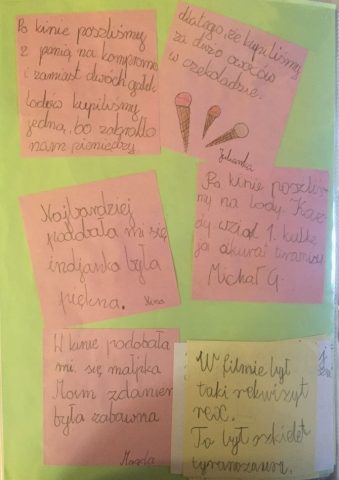 Po kinie poszliśmy
z panią na kompromis
i zamiast dwóch gałek
lodów kupiliśmy
jedną, bo zabrakło
nam pieniędzy
dlatego, że kupiliśmy
za dużo owoców
w czekoladzie.
Julianka
Po kinie poszliś-
my na lody. Każ-
dy wziął 1. kulkę
ja akurat tiramisu.
Michał G.
Najbardziej
podobała mi się
indjanka była
piękna.
W kinie podobała
mi się małpka
Moim zdaniem
była zabawna
Magda
W filmie był
taki rekwizyt
rex.
To był szkielet
tyranozaura.